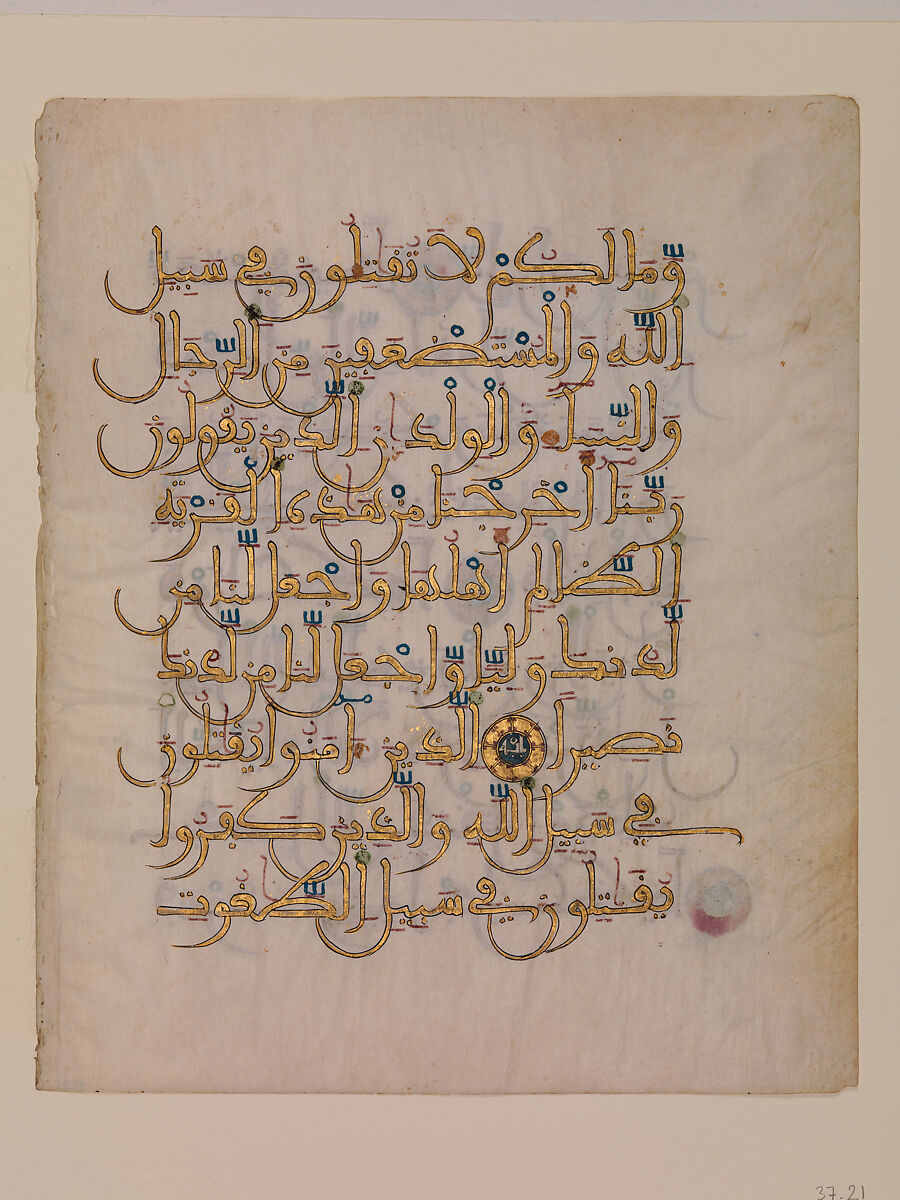 وَّمَا لَكُمْ لَا تُقَٰتِلُونَ فِي سَبِيلِ
اِ۬للَّهِ وَالْمُسْتَضْعَفِينَ مِنَ اَ۬لرِّجَالِ
وَالنِّسَآءِ وَالْوِلْدَٰنِ اِ۬لذِينَ يَقُولُونَ
رَبَّنَا أَخْرِجْنَا مِنْ هَٰذِهِ اِ۬لْقَرْيَةِ
اِ۬لظَّالِمِ أَهْلُهَا وَاجْعَل لَّنَا مِن
لَّدُنكَ وَلِيّاً وَّاجْعَل لَّنَا مِن لَّدُنكَ
نَصِيراً اَ۬لذِينَ ءَامَنُوا يُقَٰتِلُونَ
فِي سَبِيلِ اِ۬للَّهِ وَالَّذِينَ كَفَرُوا
يُقَٰتِلُونَ فِي سَبِيلِ اِ۬لطَّٰغُوتِ
37.21